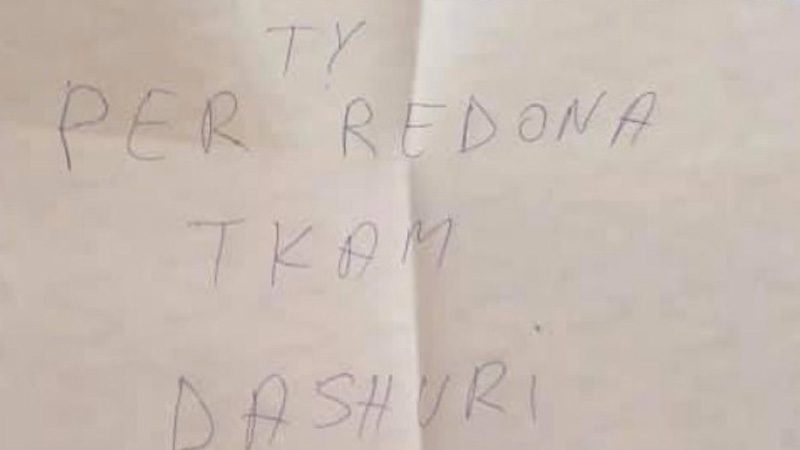 TY
PER REDONA
TKAM
DASHURI